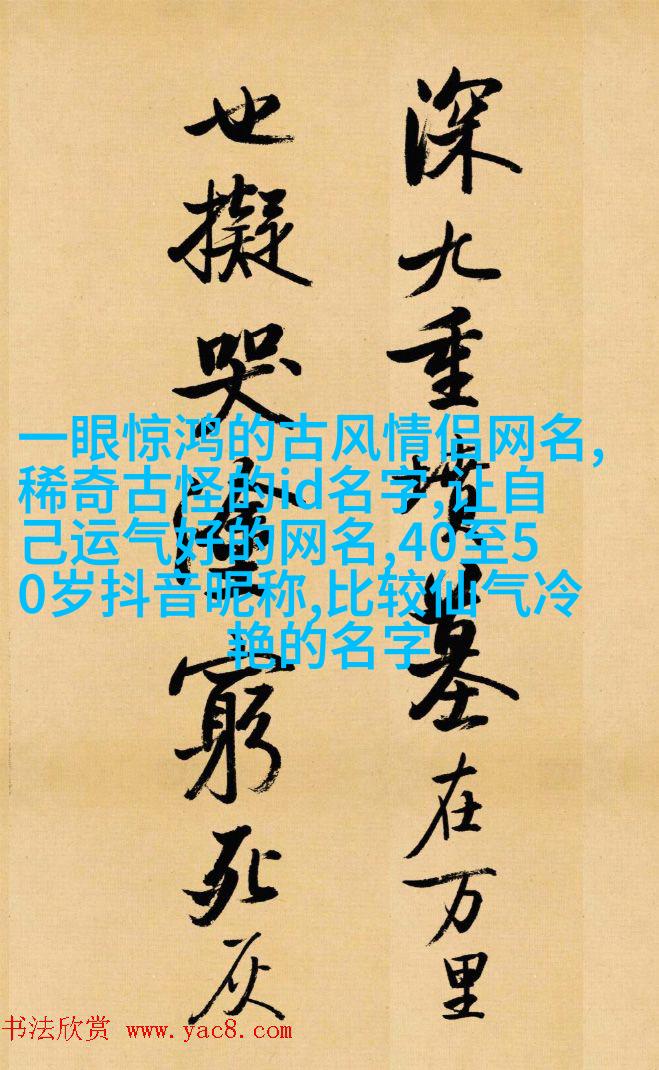 深九重墳墓在万里
也擬哭塗窮死灰
一眼惊鸿的古风情侣网名,
稀奇古怪的id名字,让自
己运气好的网名,40至5
0岁抖音昵称,比较仙气冷
艳的名字
书法欣赏 www.yac8.com